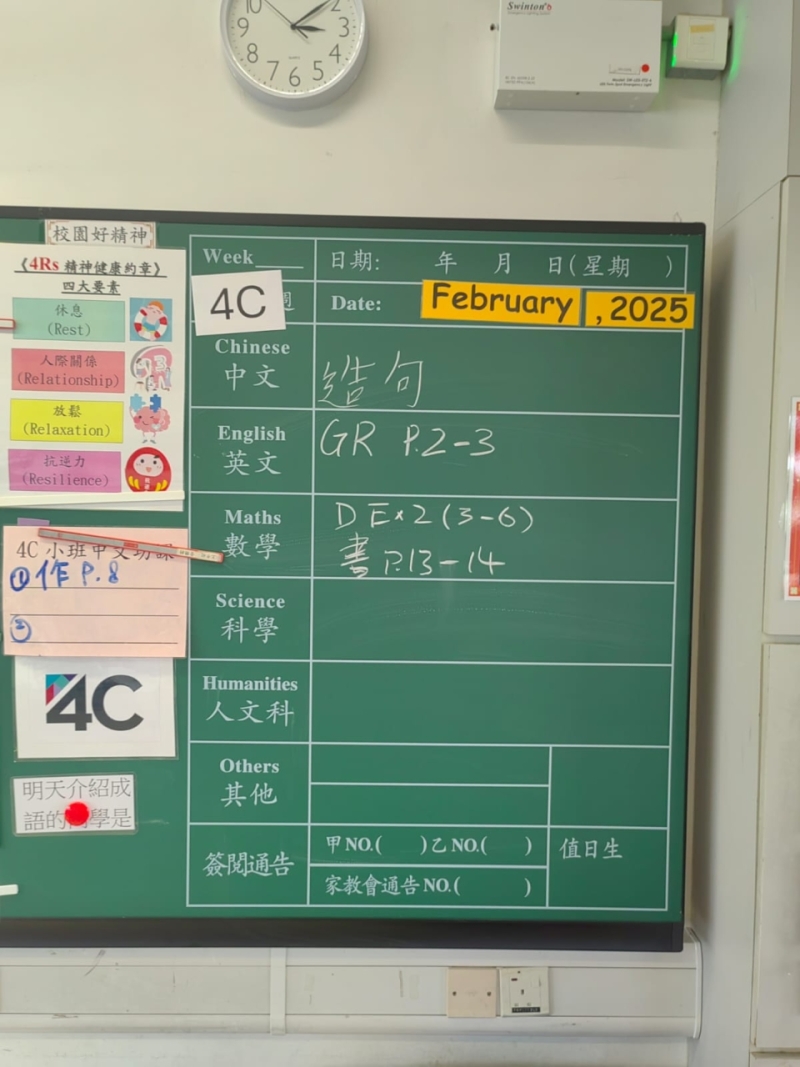 10
2
9
3
8
4
7
6
5
QUARTZ
Swinton's
校園好精神
《4Rs 精神健康約章》
四大要素
休息
(Rest)
人際關係
(Relationship)
放鬆
(Relaxation)
抗逆力
(Resilience)
4C 小班中文功課
① 作 P.8
②
4C
明天介紹成
語的同學是
Week
日期: 年 月 日(星期 )
4C
週
Date: February , 2025
Chinese
中文
造句
English
英文
GR P.2-3
Maths
數學
D Ex 2 (3-6)
書 P.13-14
Science
科學
Humanities
人文科
Others
其他
簽閱通告
甲NO.( )乙NO.( )
家教會通告NO.( )
值日生